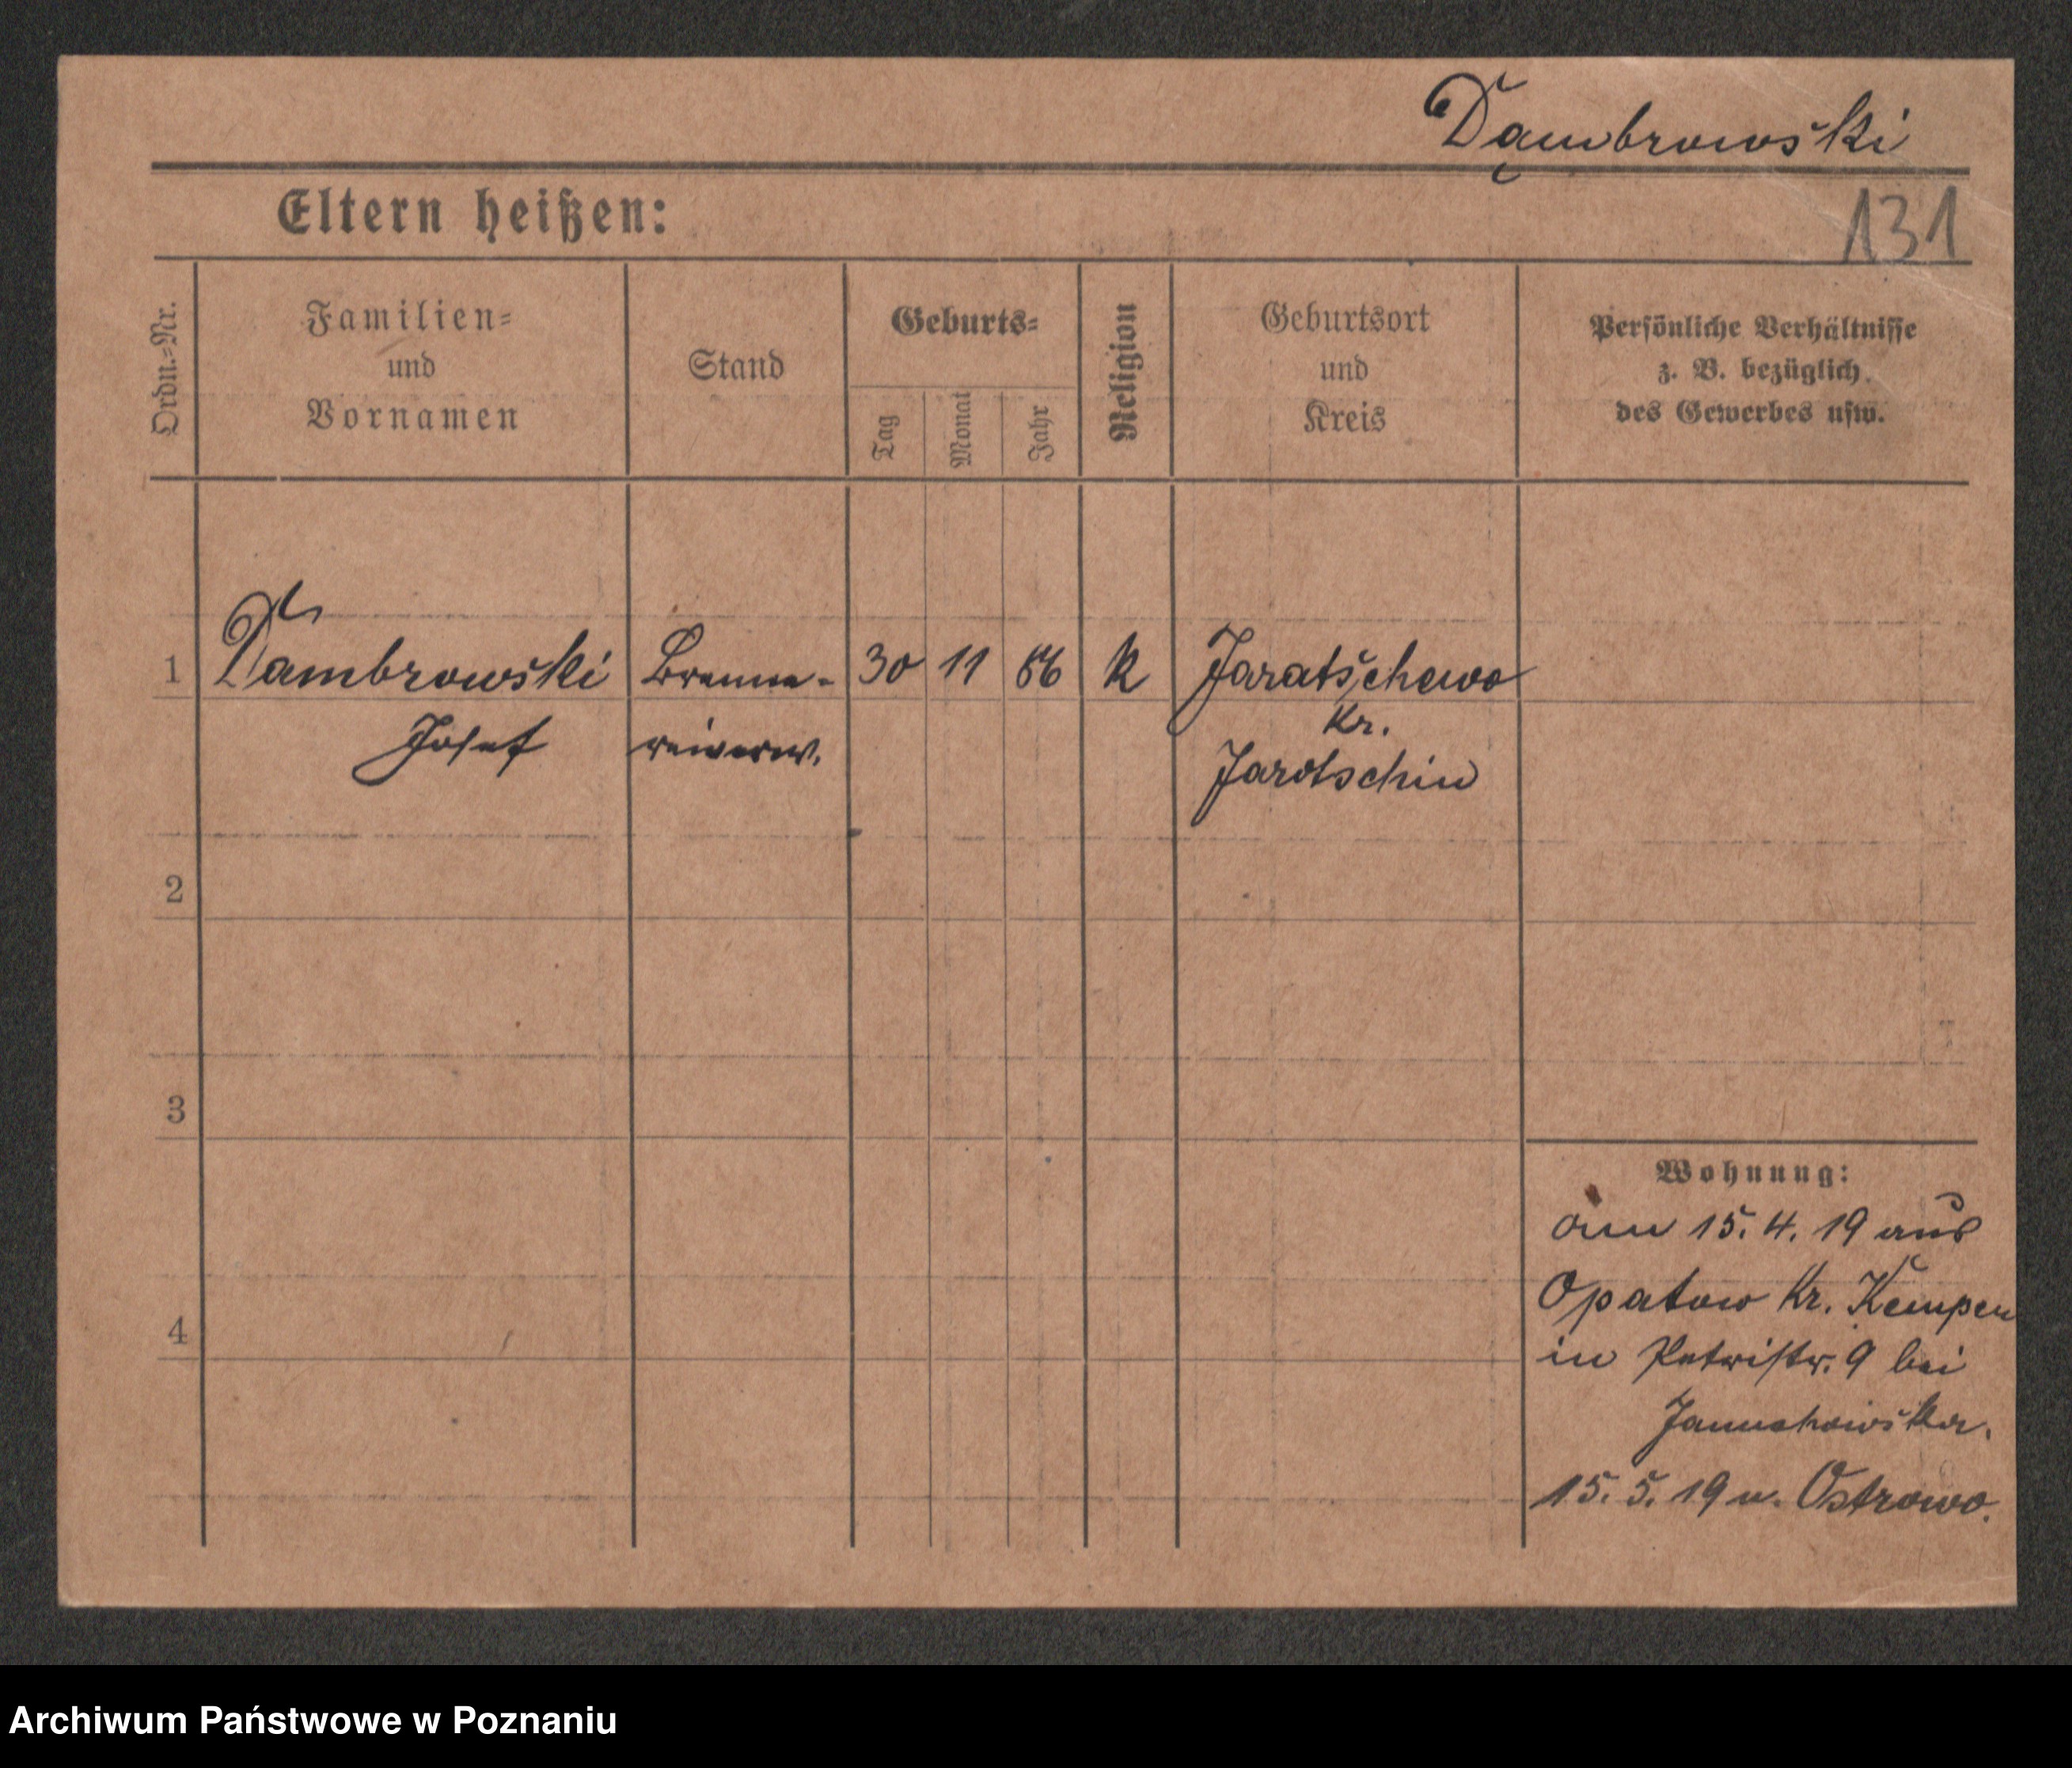 Dąmbrowski
Eltern heißen:
131
Ordn.=Nr.
Familien=
und
Vornamen
Stand
Geburts=
Tag
Monat
Jahr
Religion
Geburtsort
und
Kreis
Persönliche Verhältnisse
z. B. bezüglich
des Gewerbes usw.
1 Dambrowski Brenne- 30 11 86 k Jaratschewo
Josef reiverw. Kr.
Jarotschin
2
3
4
Wohnung:
am 15. 4. 19 aus
Opatow Kr. Kempen
in Petristr. 9 bei
15. 5. 19 n. Ostrowo.
Archiwum Państwowe w Poznaniu